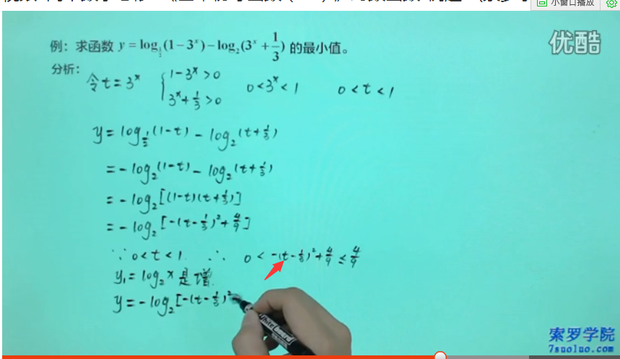 小窗口播放
例：求函数 y = log_{1/2}(1-3^x) - log_2(3^x + 1/3) 的最小值。
优酷
分析：
令 t = 3^x { 1-3^x > 0 3^x + 1/3 > 0 0 < 3^x < 1 0 < t < 1
y = log_{1/2}(1-t) - log_2(t + 1/3)
= -log_2(1-t) - log_2(t + 1/3)
= -log_2[(1-t)(t + 1/3)]
= -log_2[-(t - 1/3)^2 + 4/9]
∵ 0 < t < 1 ∴ 0 < -(t - 1/3)^2 + 4/9 ≤ 4/9
y_1 = log_2 x 是增
y = -log_2[-(t - 1/3)^2
索罗学院
7suoluo.com